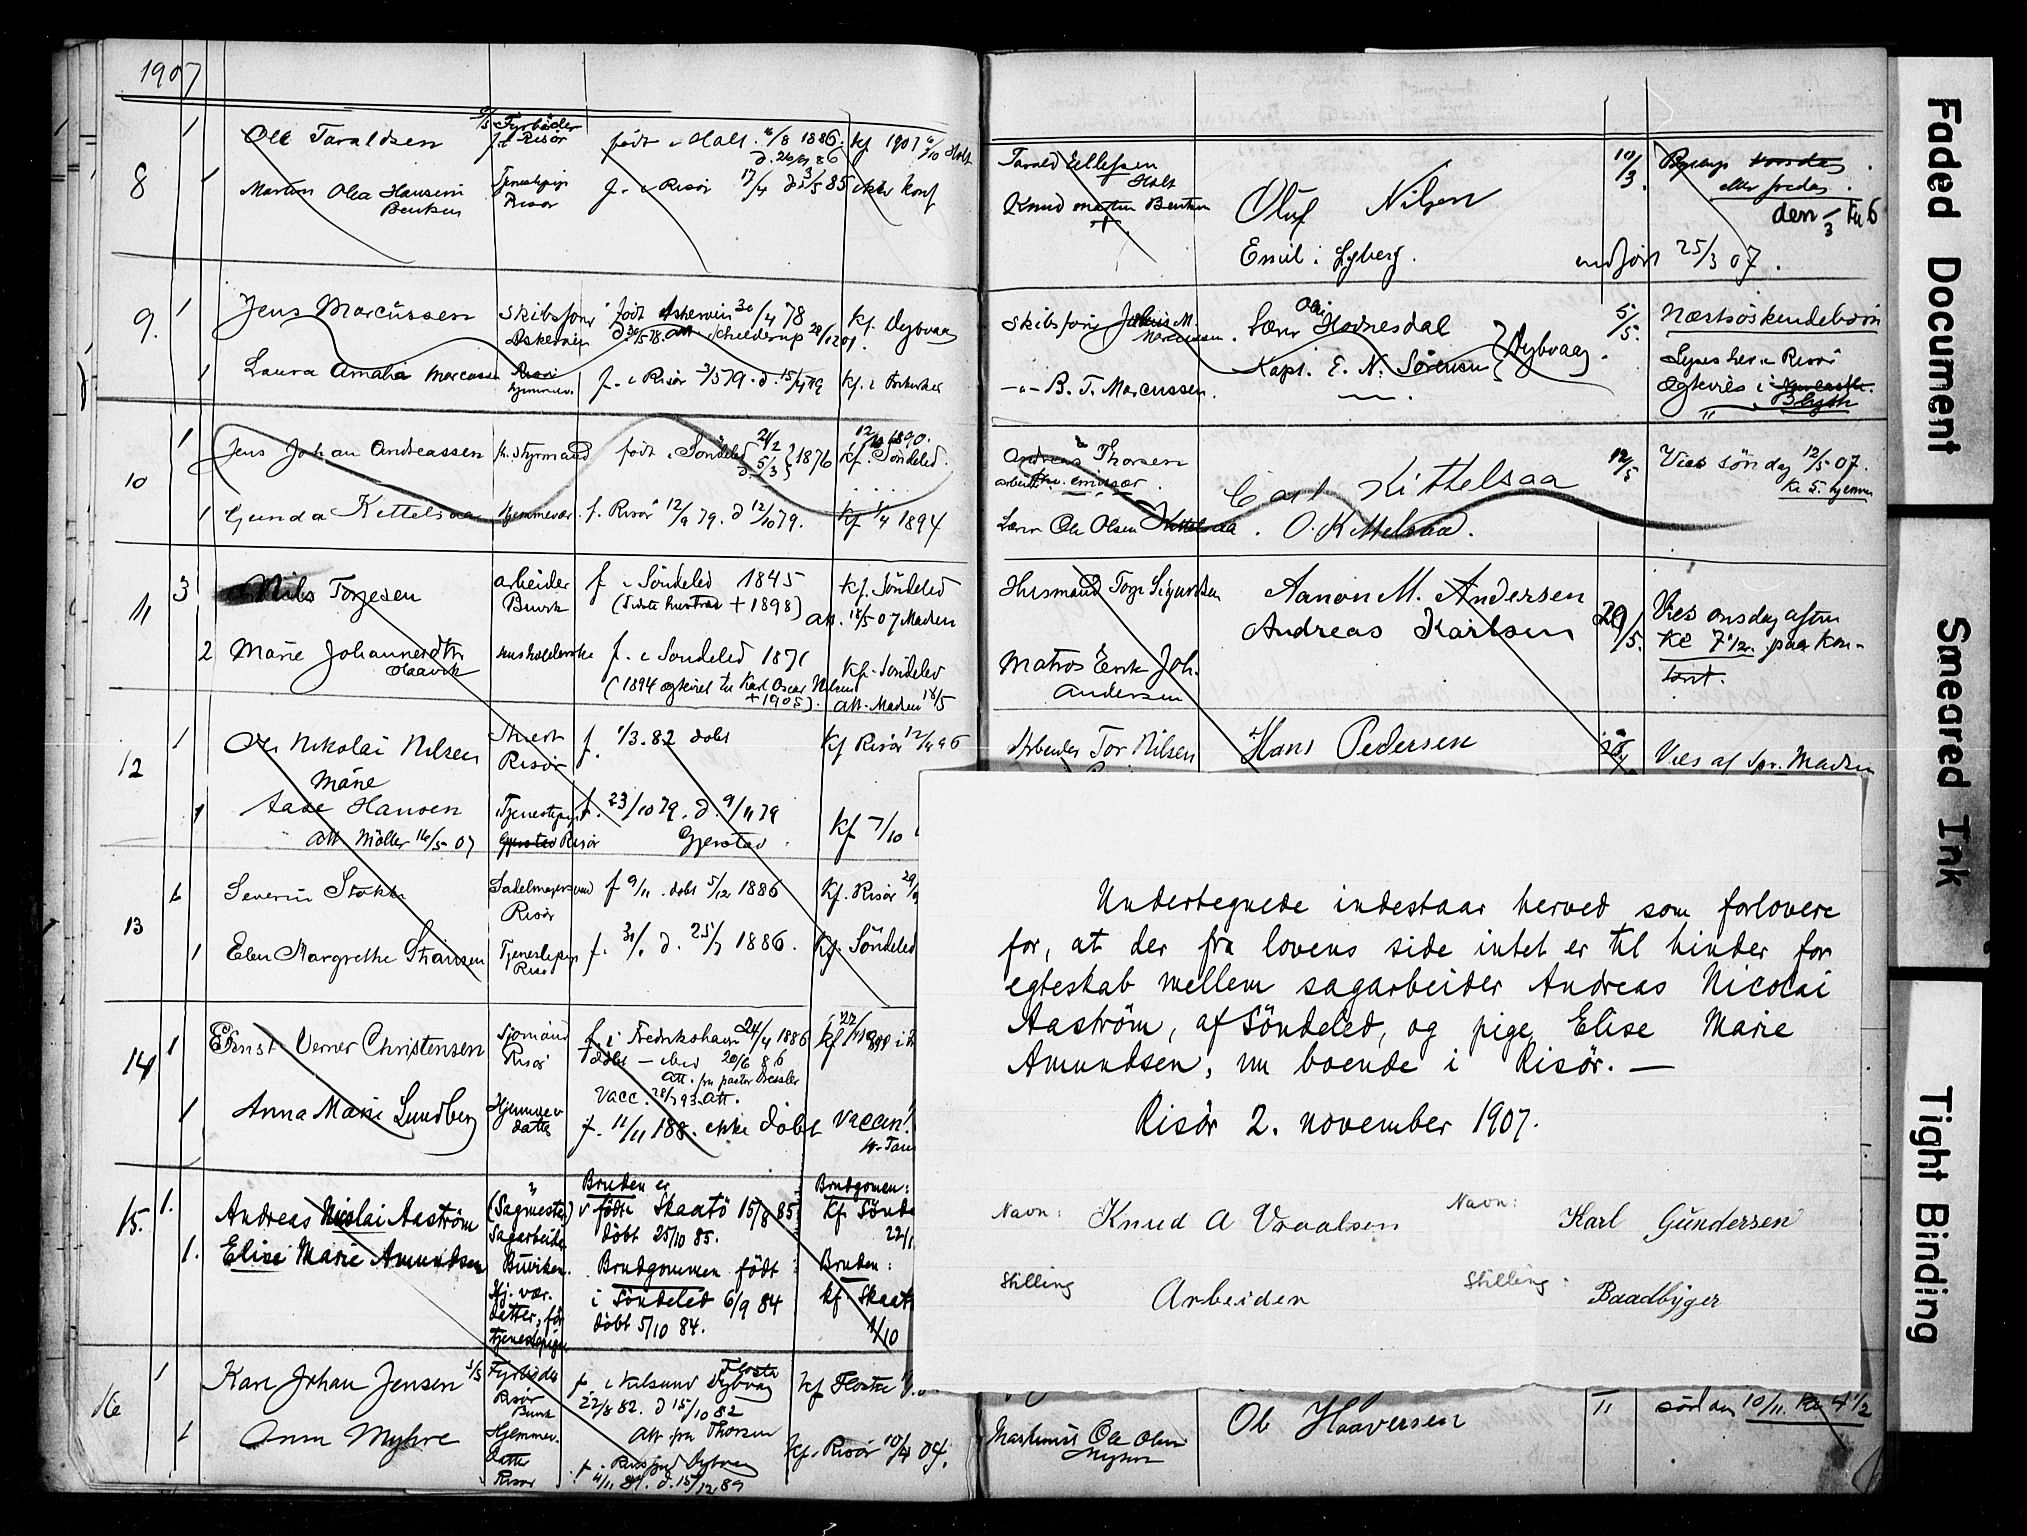 1907
8
1 Ole Taraldsen
Fyrböder
Risör
født i Holt 6/8 1886.
kf 1901 6/10 Holt
1 Olea Hansine
Bentsen
Tjenestepige
Risör
f. i Risör 17/4 85 ikke konf
Tarald Ellefsen
Holt
Knud Martin Bentsen
+
Oluf Nilsen
Emil Lyberg.
10/3.
eller fredag.
den /3 Kl 6
indført 25/3 07.
9.
1 Jens Marcussen
Skibsförer
Askeröen
født Askeröen 30/4 78
kf. Dybvaag
1 Laura Amalia Marcussen
hjemmev.
f. i Risör 3/5 79. d. 15/4 79
kf. i
Skibsförer M.
Marcussen.
Lærer Ole Hodnesdal
Kapt. E. N. Sörensen
Dybvaag.
-"- B. T. Marcussen.
5/5.
Næstsöskendebörn
Lyses her i Risör
Ægtevies i Newcastle.
" Blyth
10
1 Jens Johan Andreassen
st. styrmand
født i Söndeled 21/2 d. 5/3 1876
12/10 1890.
kf. Söndeled.
1 Gunda Kittelsaa
hjemmevær.
f. Risör 12/9 79. d 12/10 79.
kf /4 1894
Andreas Thorsen
emissær
Carl Kittelsaa
Lærer Ole Olsen Kittelsaa. O. Kittelsaa.
12/5
Vies söndag 12/5 07.
Kl 5. hjemme
11
3 Nils Torjesen
arbeider
Buvik
f i Söndeled 1845
(Sidste hustru + 1898)
kf. Söndeled
Att. 18/5 07 Madsen
2 Marie Johannesdtr
Haavik
husholderske
f. i Söndeled 1871
(1894 ægteviet til Karl Oscar Nilsen
+ 1905).
kf. Söndeled
att. Madsen 18/5
Husmand Torje Sigurdsen
Aanon M. Andersen
Andreas Karlsen
Matros Enk Joh.
Andersen
29/5.
Vies onsdag aften
Kl 7 1/2. paa kon-
tort.
12
1 Ole Nikolai Nilsen
Risör
f. 1/3. 82 döbt
kf Risör 12/4 96
Marie
1 Aase Hansen
att Möller 16/5 07
Tjenestepige
Gjerstad Risör
f. 23/10 79. d. 9/11 79
Gjerstad.
kf 7/10
Arbeider Tor Nilsen
Hans Pedersen
Vies af Spr. Madsen
13
6 Severin Stokke
Sadelmagersvend
Risör
f 9/11. döbt 5/12 1886
kf. Risör 29/9
1 Ellen Margrethe
Tjenestepige
Risör
f. d. 25/7 1886.
kf. Söndeled
14
1 Ernst Verner Christensen
Sjömand
Risör
f. i Fredrikshavn 24/4 1886
döbt — ibid 20/6 86
att. fra pastor Dressler
kf
1 Anna Marie Lundberg
Hjemmev
datter
Vacc. 28/7 93. att.
f. 11/11 188. ikke döbt
vaccin.
15.
1. Andreas Nicolai Aaström
(Sagmester)
Sagarbeider
Buviken.
Bruden er
født Skaatö 15/8 85
döbt 25/10 85.
Brudgomen:
kf. Sönde
22/
1. Elise Marie Amundsen
Hj. vær.
datter, før
tjenestepige.
Brudgommen født
i Söndeled 6/9 84
döbt 5/10 84.
Bruden:
kf. Skaat
/10
Undertegnede indestaar herved som forlovere
for, at der fra lovens side intet er til hinder for
egteskab mellem sagarbeider Andreas Nicolai
Aaström, af Söndeled, og pige Elise Marie
Amundsen, nu boende i Risör. —
Risör 2. november 1907.
Navn: Knud A Vraalsen Navn: Karl Gundersen
Stilling Arbeider Stilling: Baadbyger
16
1 Karl Johan Jensen
Fyrböder
Risör
Buvik
f. i Flosta
Dybvaag
22/8 82. d 15/10 82
att fra Thorsen
kf Flosta
1 Anna Myhre
Hjemmev.
datter
Risör
f. i Dybvaag
4/11 84. d. 15/12 89
kf. Risör 10/4 04.
Ole Olsen
Myhre
Ole Haaversen
11
söndag 10/11. Kl 4 1/2
Faded Document
Smeared Ink
Tight Binding